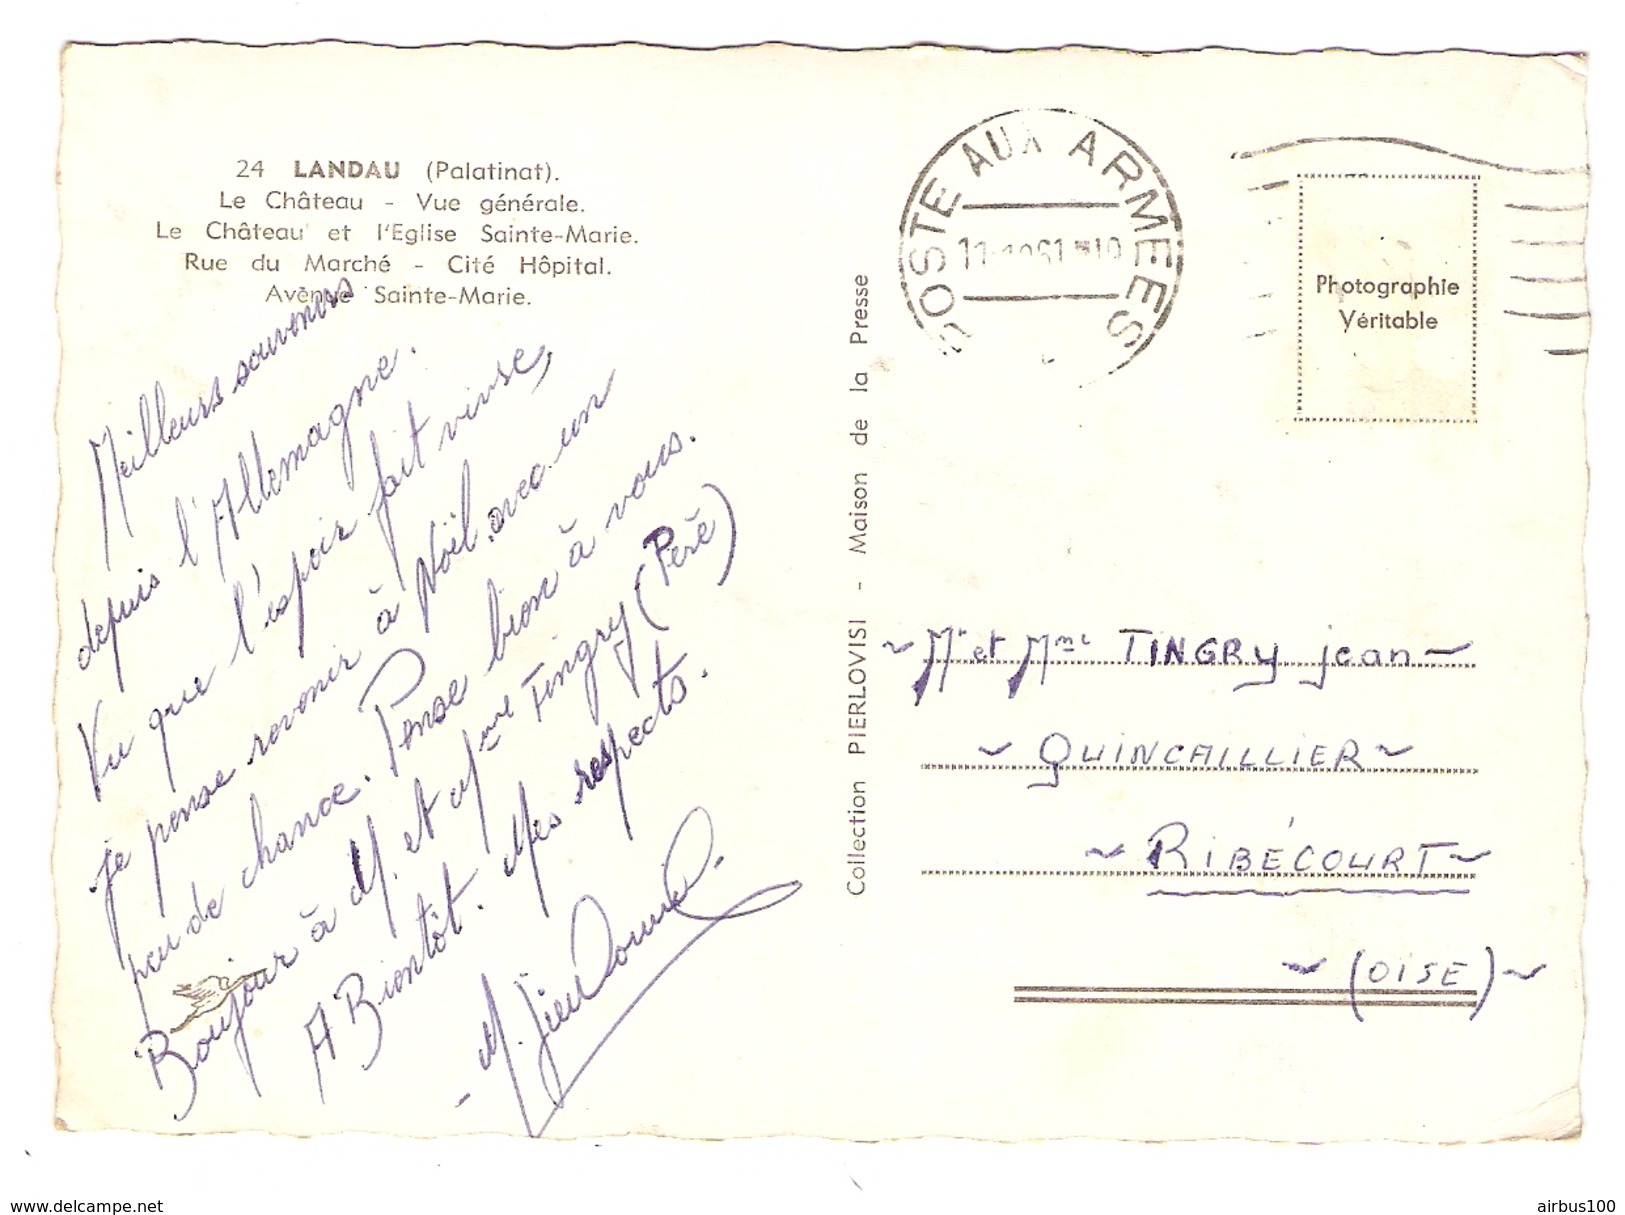 24 LANDAU (Palatinat).
Le Château - Vue générale.
Le Château et l'Eglise Sainte-Marie.
Rue du Marché - Cité Hôpital.
Avenue Sainte-Marie.
Meilleurs souvenirs
depuis l'Allemagne.
Vu que l'espoir fait vivre,
je pense revenir à Noël. avec un
peu de chance. Pense bien à vous.
Boujour à M. et Mme Tingry (Père)
A Bientôt. Mes respects.
Collection PIERLOVISI - Maison de la Presse
POSTE AUX ARMEES
Photographie
Véritable
~ Mr et Mme TINGRY jean ~
~ QUINCAILLIER ~
~ RIBÉCOURT ~
~ (OISE) ~
www.delcampe.net
airbus100